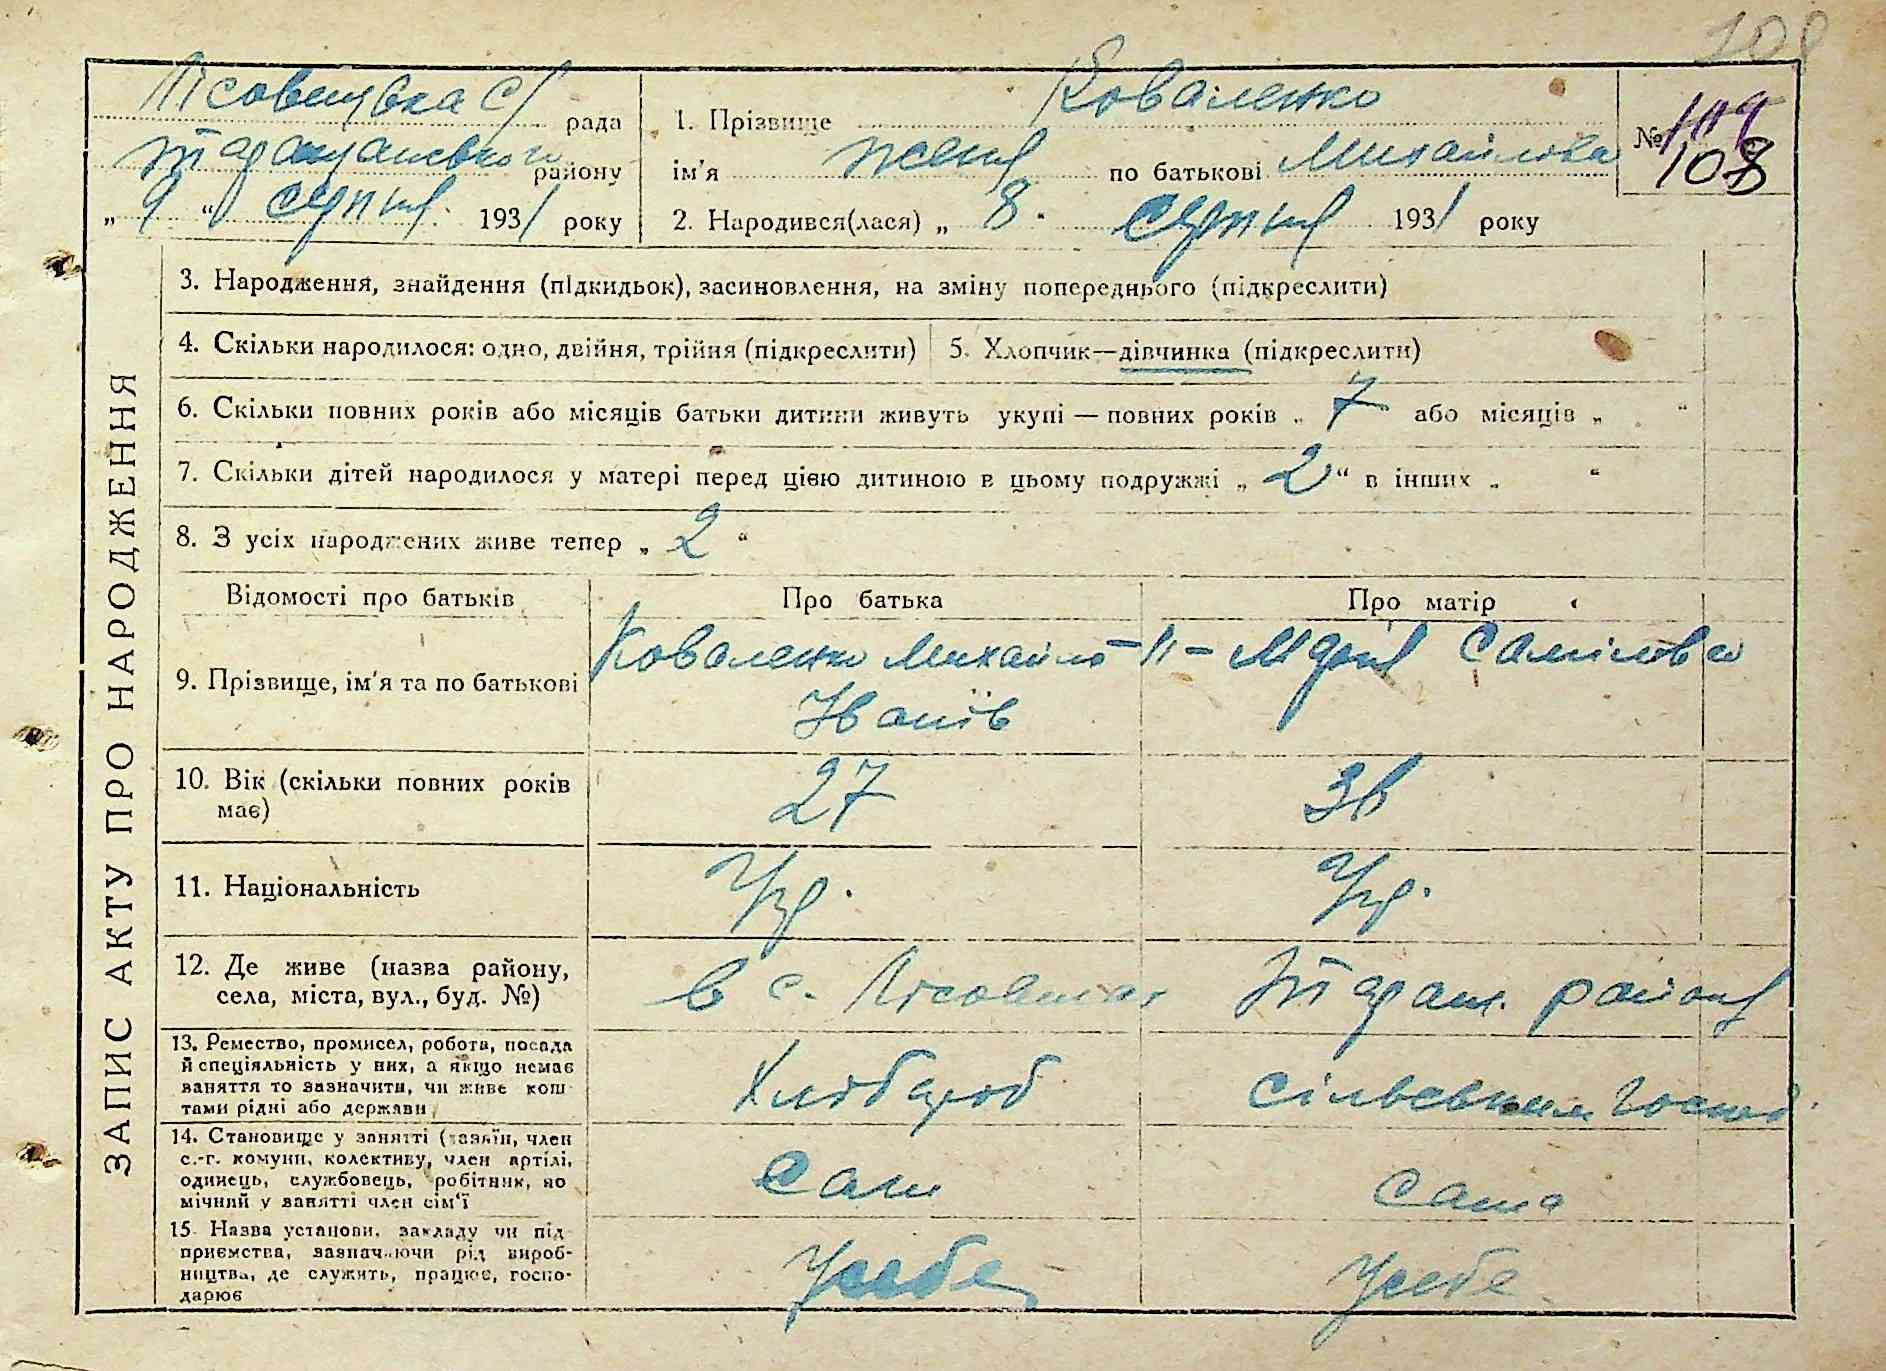 108
Лісовицька с/ рада
Таращанського району
„ 9 “ серпня 1931 року
1. Прізвище Коваленко
ім'я Женя по батькові Михайлівна
№ 108
2. Народився(лася) „ 8. серпня 1931 року
ЗАПИС АКТУ ПРО НАРОДЖЕННЯ
3. Народження, знайдення (підкидьок), засиновлення, на зміну попереднього (підкреслити)
4. Скільки народилося: одно, двійня, трійня (підкреслити) 5. Хлопчик—дівчинка (підкреслити)
6. Скільки повних років або місяців батьки дитини живуть укупі — повних років „ 7 або місяців „ “
7. Скільки дітей народилося у матері перед цією дитиною в цьому подружжі „ 2 “ в інших „ “
8. З усіх народжених живе тепер „ 2 “
Відомості про батьків Про батька Про матір
9. Прізвище, ім'я та по батькові Коваленко Михайло –//– Марія Самілов
Іванів
10. Вік (скільки повних років 27
має)
11. Національність Укр. Укр.
12. Де живе (назва району, в с. Таращ. району
села, міста, вул., буд. №)
13. Ремество, промисел, робота, посада
й спеціяльність у них, а якщо немає Хлібороб сільським госпо
заняття то зазначити, чи живе кош-
тами рідні або держави
14. Становище у занятті (хазяїн, член
с.-г. комуни, колективу, член артілі, Сам сама
одинець, службовець, робітник, по
мічний у занятті член сім'ї
15. Назва установи, закладу чи під
приємства, зазначаючи рід вироб- У себе У себе
ництва, де служить, працює, госпо-
дарює